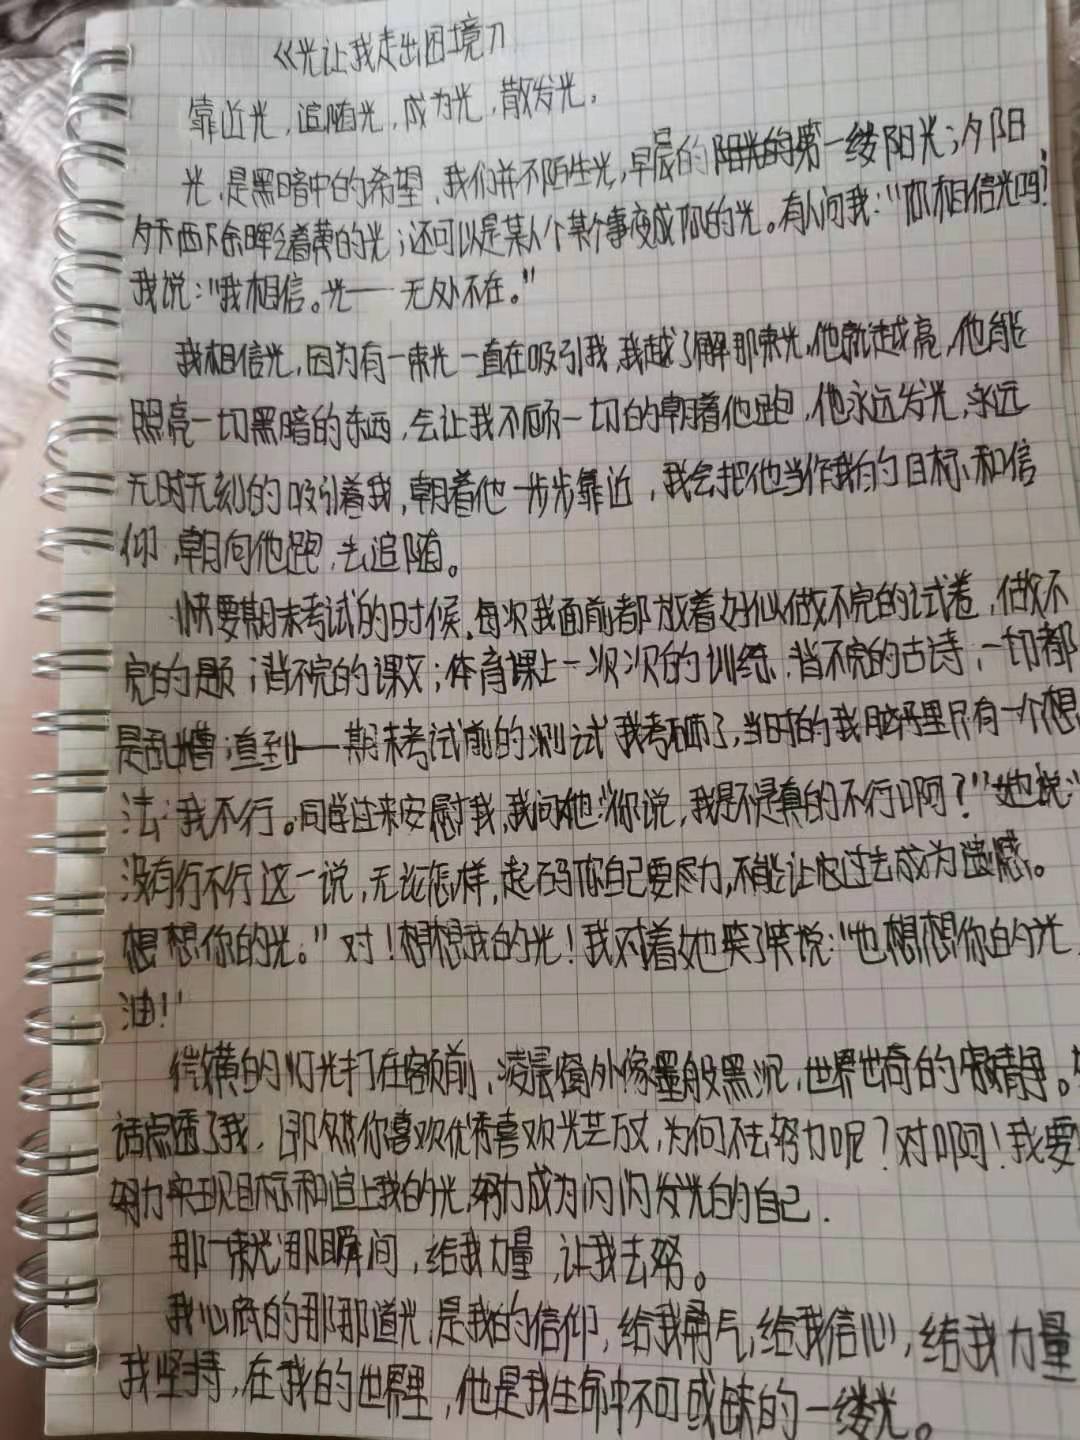 《光让我走出困境》
靠近光，追随光，成为光，散发光。
光，是黑暗中的希望，我们并不陌生光，早晨的阳光的第一缕阳光；夕阳
夕下西下余晖金黄的光；还可以是某人个某个事变成你的光。有人问我："你相信光吗？
我说："我相信。光——无处不在。"
我相信光，因为有一束光一直在吸引我，我越了解那束光，他就越亮，他能
照亮一切黑暗的东西，会让我不顾一切的朝着他跑，他永远发光，永远
无时无刻的吸引着我，朝着他一步步靠近，我会把他当作我的目标、和信
仰，朝向他跑，去追随。
快要期末考试的时候，每次我面前都放着好似做不完的试卷，做不
完的题；背不完的课文；体育课上一次次的训练，背不完的古诗，一切都
是乱糟；直到——期末考试前的测试我考砸了，当时的我脑子里只有一个想
法：我不行。同学过来安慰我，我问她："你说，我是不是真的不行啊？"她说："
没有行不行这一说，无论怎样，起码你自己要尽力，不能让它过去成为遗憾。
想想你的光。"对！想想我的光！我对着她笑了笑说："也想想你的光，
油！"
微黄的灯光打在额前，凌晨窗外像墨般黑沉，世界出奇的寂静。
话点透了我，即然你喜欢优秀喜欢光芒万丈，为何不去努力呢？对啊！我要
努力实现目标和追上我的光，努力成为闪闪发光的自己.
那一束光那瞬间，给我力量，让我去努。
我心底的那那道光，是我的信仰，给我勇气，给我信心，给我力量
我坚持，在我的世界里，他是我生命中不可或缺的一缕光。